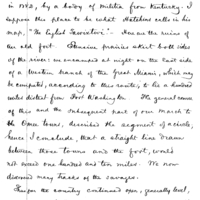 in 1782, by a body of militia from Kentucky. I
suppose this place to be what Hutchins calls in his
map, "The English Tawixtwi." Here are the ruins of
the old fort. Extensive prairies about both sides
of the river: we encamped at night on the east side
of a western branch of the Great Miami, which may
be computed, according to this route, to be a hundred
miles distant from Fort Washington. The general course
of this and the subsequent part of our march to
the Omee town, describes the segment of a circle,
hence I conclude that a straight line drawn
between those towns and the fort, would
not exceed one hundred and ten miles. We now
discovered many tracks of the savages.
the country continued open, generally level,